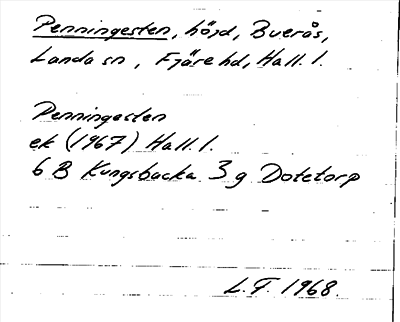 Penningesten, höjd, Buerås,
Landa sn, Fjäre hd, Hall. l.
Penningesten
ek (1967) Hall. l.
6 B Kungsbacka 3 g Dotetorp
L.F. 1968